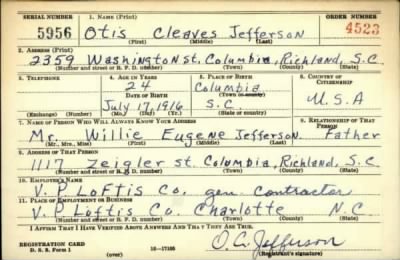 SERIAL NUMBER 1. NAME (Print) ORDER NUMBER
5956 Otis Cleaves Jefferson 4523
(First) (Middle) (Last)
2. ADDRESS (Print)
2359 Washington st. Columbia, Richland, S.C
(Number and street or R. F. D. number) (Town) (County) (State)
3. TELEPHONE 4. AGE IN YEARS 5. PLACE OF BIRTH 6. COUNTRY OF CITIZENSHIP
24 Columbia
DATE OF BIRTH (Town or county)
July 17, 1916 S.C U.S.A
(Exchange) (Number) (Mo.) (Day) (Yr.) (State or country)
7. NAME OF PERSON WHO WILL ALWAYS KNOW YOUR ADDRESS 8. RELATIONSHIP OF THAT PERSON
Mr. Willie Eugene Jefferson Father
(Mr., Mrs., Miss) (First) (Middle) (Last)
9. ADDRESS OF THAT PERSON
1117 Zeigler st. Columbia, Richland, S.C
(Number and street or R. F. D. number) (Town) (County) (State)
10. EMPLOYER'S NAME
V. P Loftis Co. gen contractor
11. PLACE OF EMPLOYMENT OR BUSINESS
V. P Loftis Co. Charlotte N C
(Number and street or R. F. D. number) (Town) (County) (State)
I AFFIRM THAT I HAVE VERIFIED ABOVE ANSWERS AND THAT THEY ARE TRUE.
REGISTRATION CARD
D. S. S. Form 1 (over) 16—17105 O. C. Jefferson